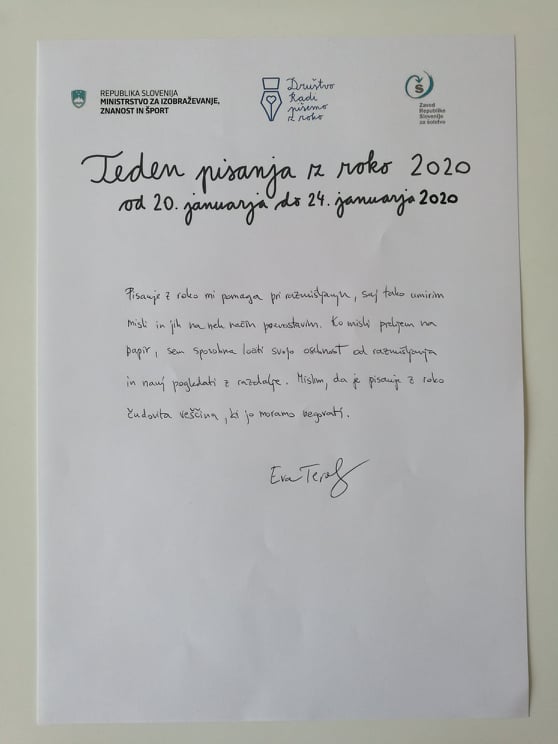 REPUBLIKA SLOVENIJA
MINISTRSTVO ZA IZOBRAŽEVANJE,
ZNANOST IN ŠPORT
Društvo
Radi
pišemo
z roko
Zavod
Republike
Slovenije
za šolstvo
Teden pisanja z roko 2020
od 20. januarja do 24. januarja 2020
Pisanje z roko mi pomaga pri razmišljanju, saj tako umirim
misli in jih na nek način poenostavim. Ko misli prelijem na
papir, sem sposobna ločiti svojo osebnost od razmišljanja
in nanj pogledati z razdalje. Mislim, da je pisanje z roko
čudovita veščina, ki jo moramo negovati.
Eva